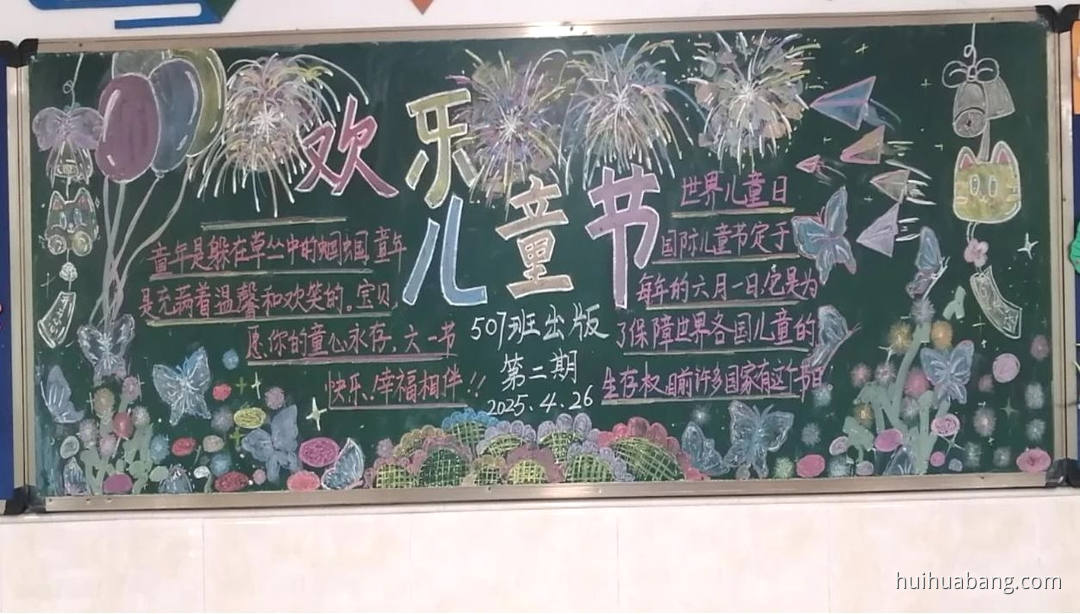 欢乐
儿童节
童年是躲在草丛中的蝈蝈,童年
是充满着温馨和欢笑的。宝贝,
愿你的童心永存,六一节
快乐、幸福相伴!!
507班出版
第二期
2025.4.26
世界儿童日
国际儿童节定于
每年的六月一日,它是为
了保障世界各国儿童的
生存权,目前许多国家有这个节日.
huihuabang.com